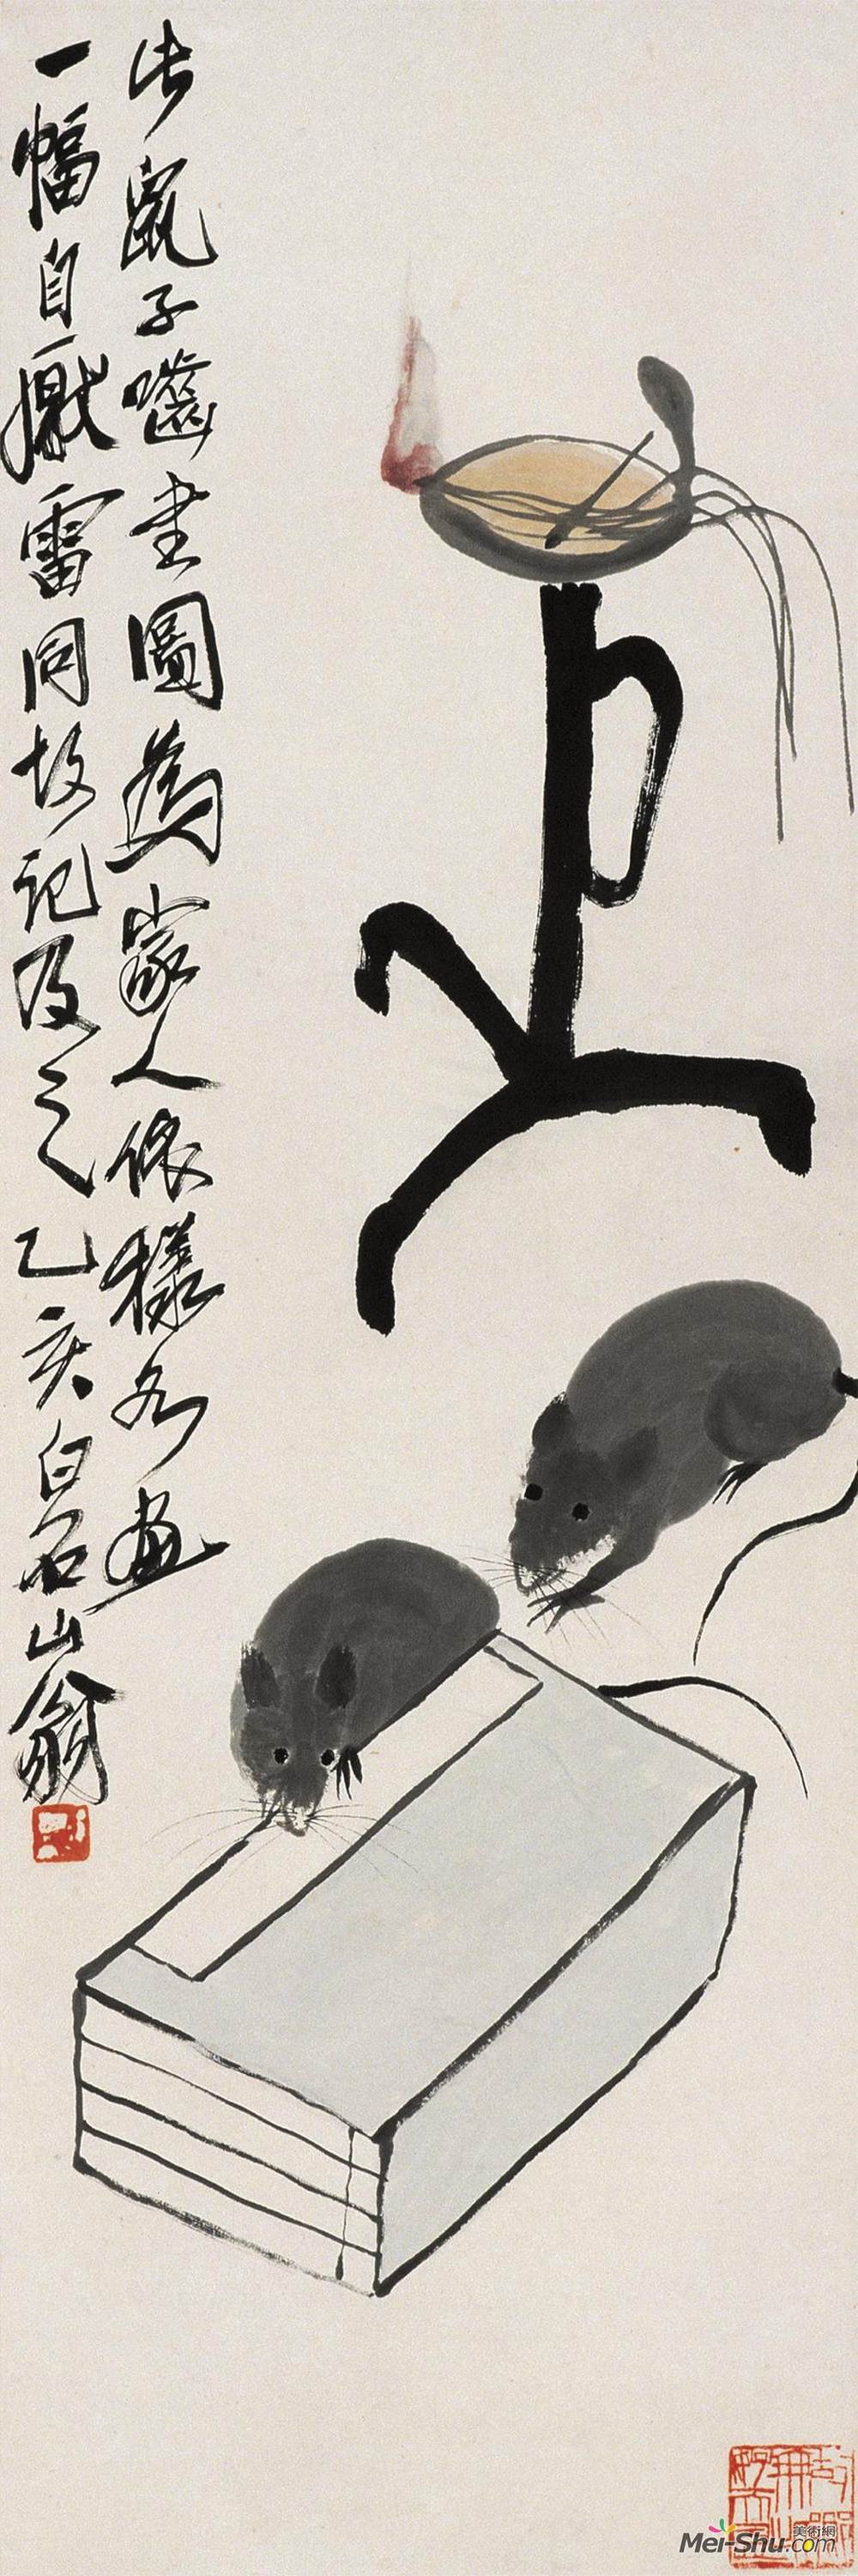 此鼠子嚙書圖為家人依樣各畫
一幅自厭雷同故記及之乙亥白石山翁
美術網
Mei-Shu.com